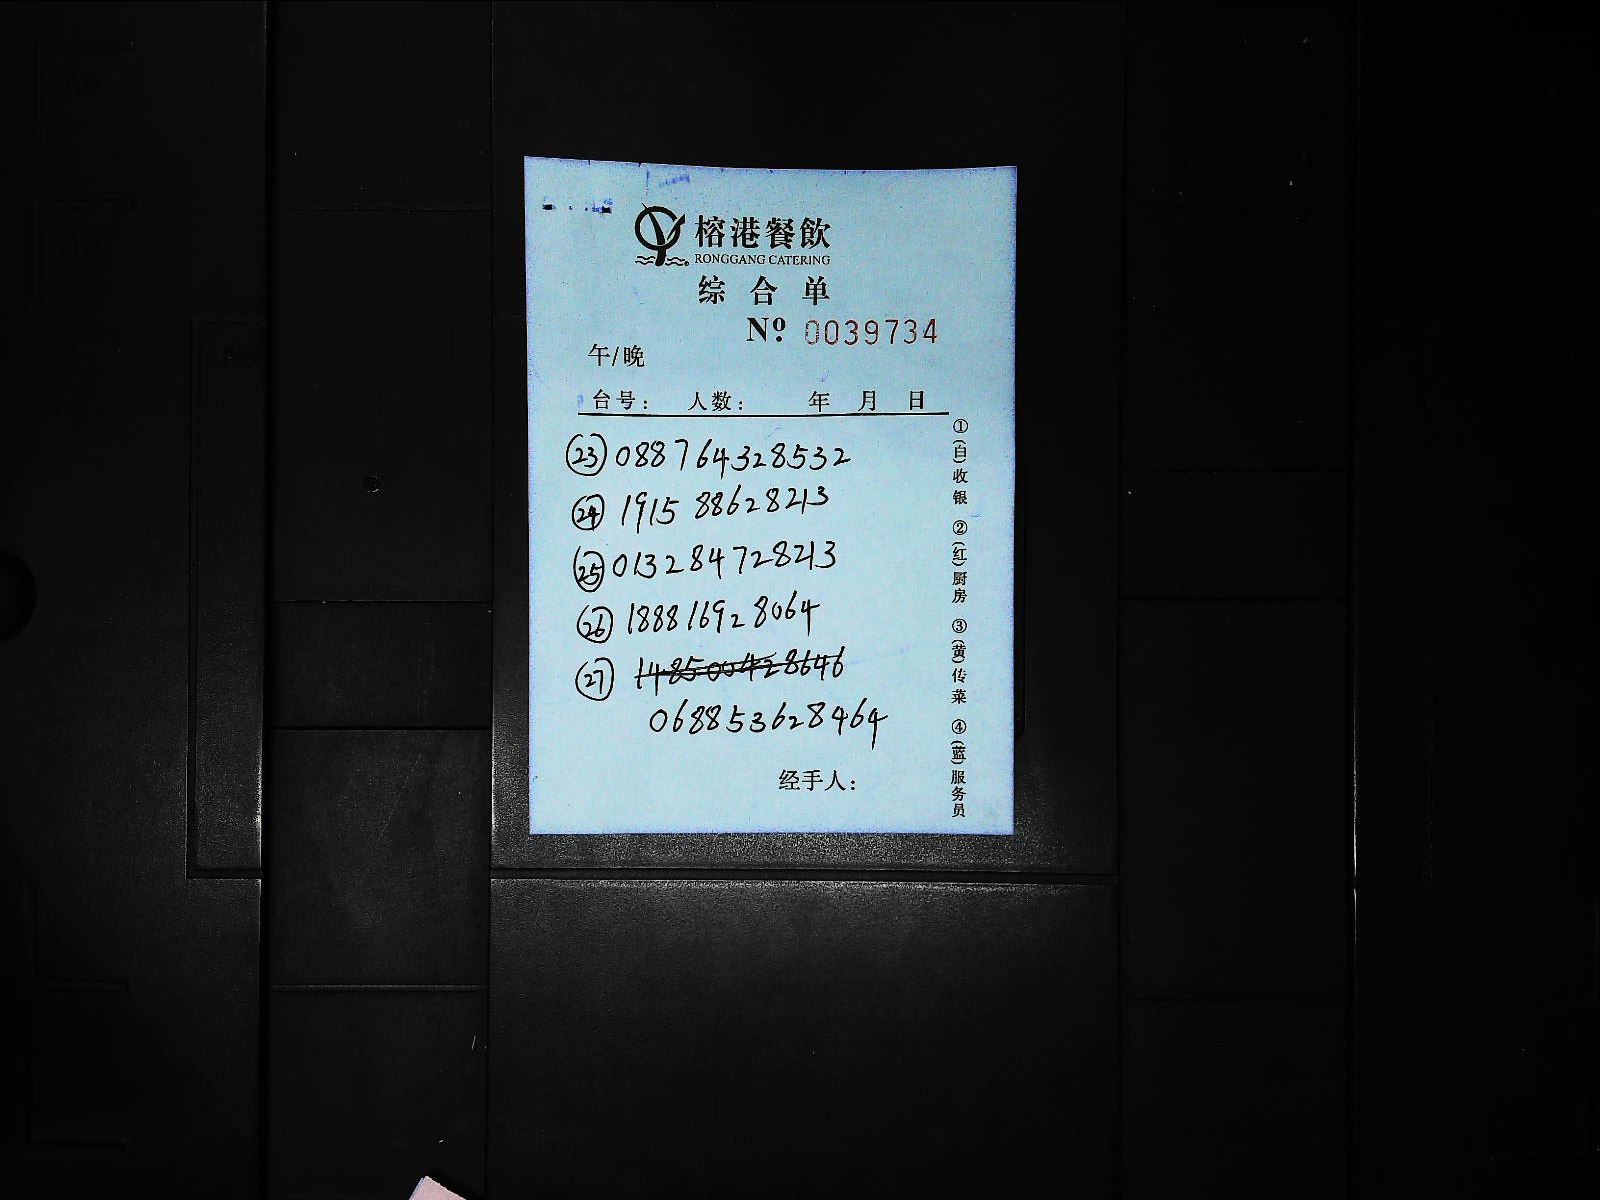 榕港餐飲
RONGGANG CATERING
综合单
Nº 0039734
午/晚
台号： 人数： 年 月 日
㉓ 088764328532
㉔ 191588628213
㉕ 013284728213
㉖ 188816928064
㉗ 148500428646
068853628464
经手人：
①(白)收银 ②(红)厨房 ③(黄)传菜 ④(蓝)服务员